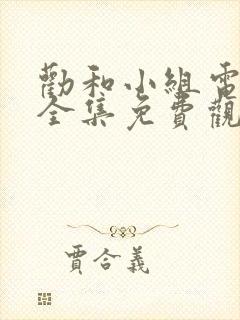 勸和小組電
全集免費觀
賈合義